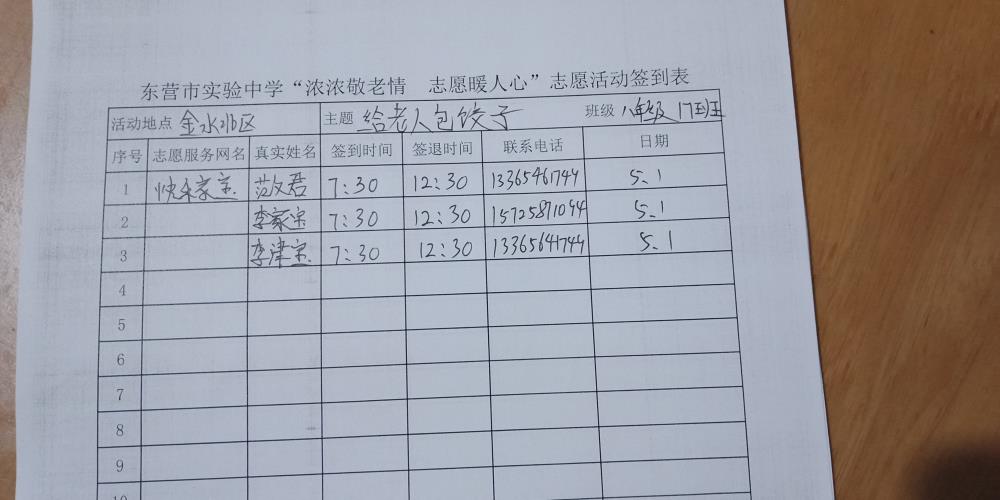 东营市实验中学“浓浓敬老情 志愿暖人心”志愿活动签到表
活动地点 金水北区 主题 给老人包饺子 班级 八年级17班
序号 志愿服务网名 真实姓名 签到时间 签退时间 联系电话 日期
1 快乐家宝 范文君 7:30 12:30 13365461744 5.1
2 李家宝 7:30 12:30 15725871044 5.1
3 李津宝 7:30 12:30 13365641744 5.1
4
5
6
7
8
9
10